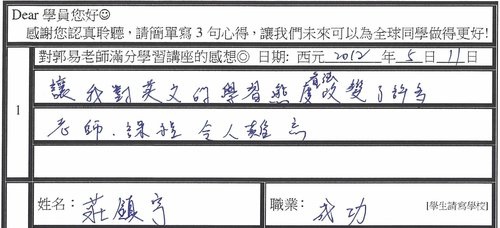 Dear 學員您好☺
感謝您認真聆聽，請簡單寫 3 句心得，讓我們未來可以為全球同學做得更好!
對郭易老師滿分學習講座的感想◎ 日期: 西元 2012 年 5 月 11 日
1
讓我對英文的學習態度改變了許多
老師、課程令人難忘
姓名： 莊鎮宇 職業： 成功 [學生請寫學校]